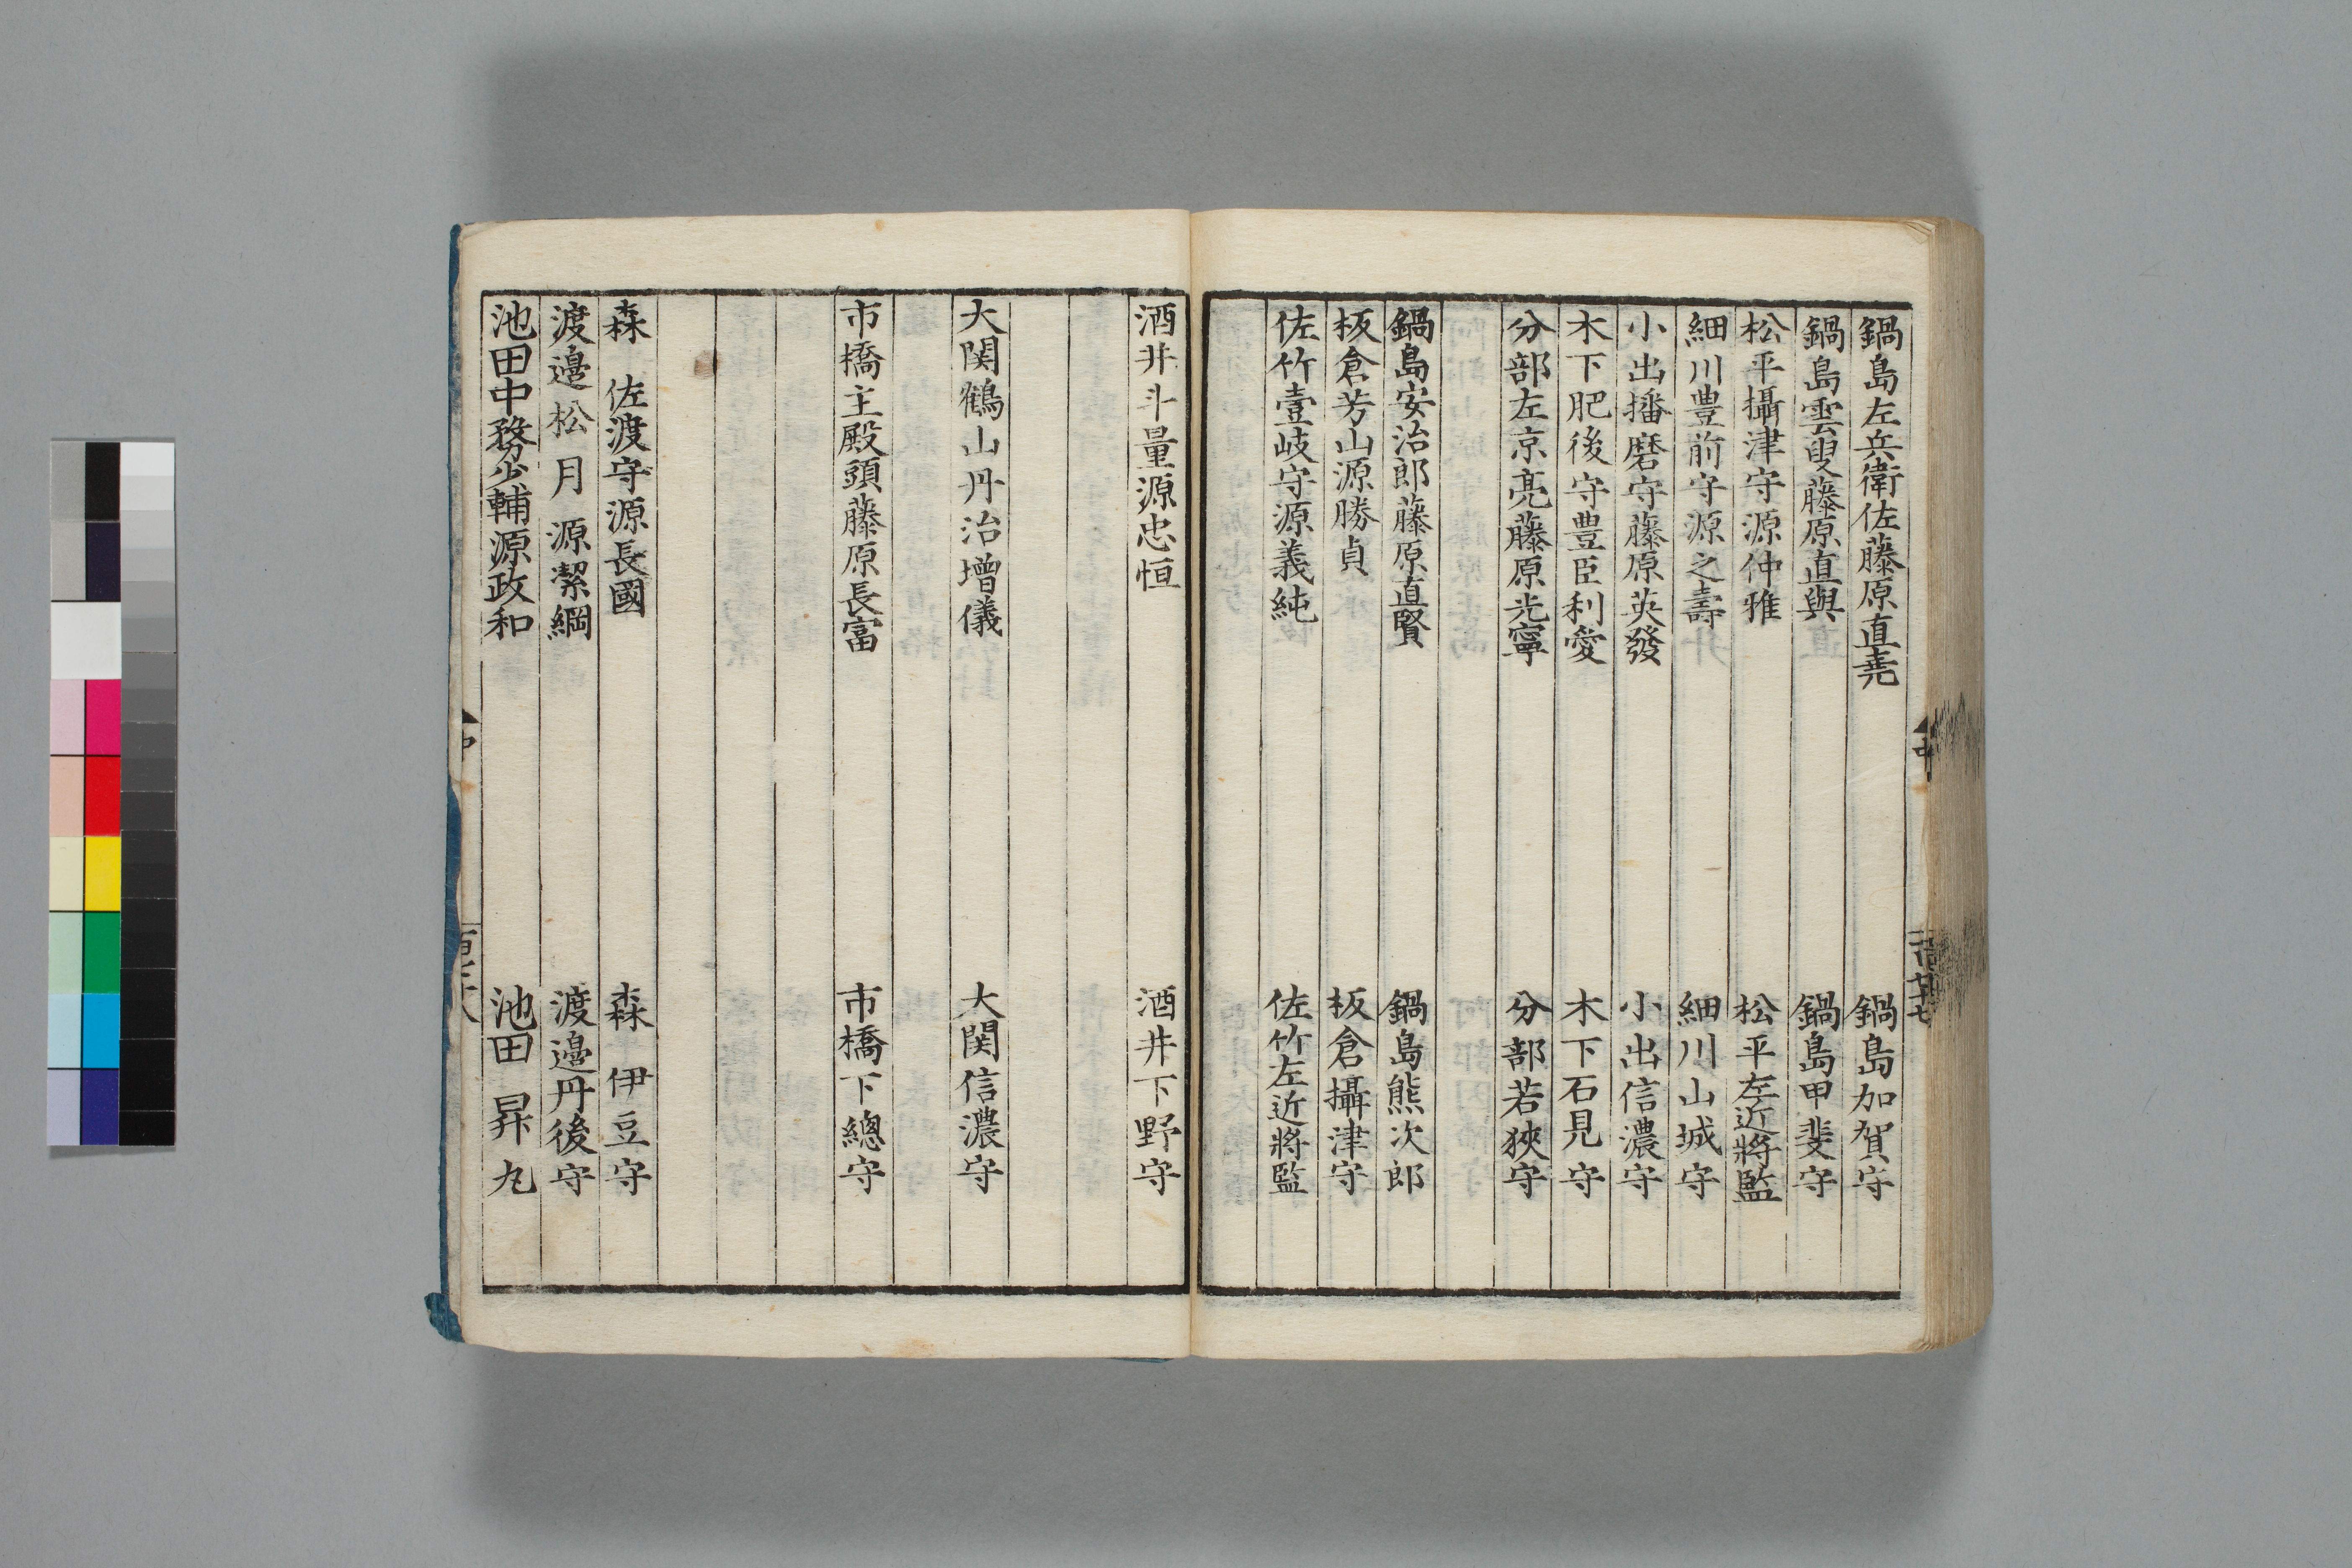 鍋島左兵衛佐藤原直堯 鍋島加賀守
鍋島雲叟藤原直與 鍋島甲斐守
松平攝津守源仲雅 松平左近將監
細川豊前守源之壽 細川山城守
小出播磨守藤原英發 小出信濃守
木下肥後守豊臣利愛 木下石見守
分部左京亮藤原光寧 分部若狹守
鍋島安治郎藤原直賢 鍋島熊次郎
板倉芳山源勝貞 板倉攝津守
佐竹壹岐守源義純 佐竹左近將監
酒井斗量源忠恒 酒井下野守
大関鶴山丹治増儀 大関信濃守
市橋主殿頭藤原長富 市橋下總守
森 佐渡守源長國 森 伊豆守
渡邉松月源潔綱 渡邉丹後守
池田中務少輔源政和 池田昇丸